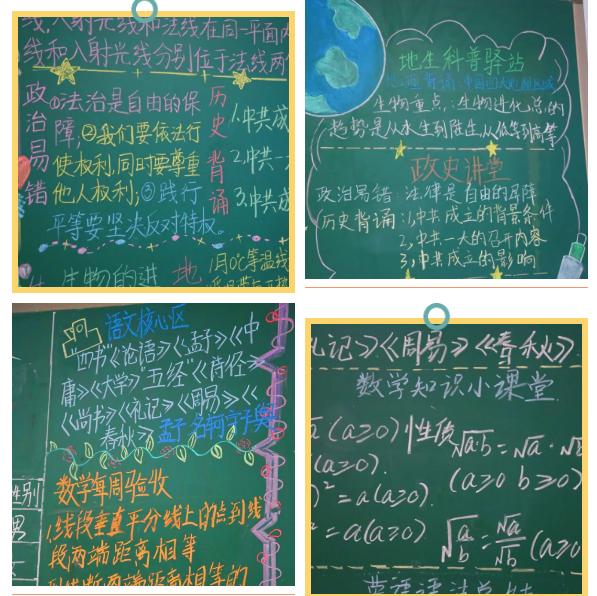 线,入射光线和法线在同一平面内
线和入射光线分别位于法线两侧
政治易错
①法治是自由的保
障,②我们要依法行
使权利,同时要尊重
他人权利;③践行
平等要坚决反对特权。
历史背诵
1.中共成
2.中共一大
3.中共成
生物的进
地
1月0℃等温线
地生科普驿站
地理背诵:中国四大地理区域
生物重点:生物进化总的
趋势是从水生到陆生,从低等到高等
政史讲堂
政治易错:法律是自由的保障
历史背诵:1,中共成立的背景条件
2,中共一大的召开内容
3,中共成立的影响
语文核心区
"四书"《论语》《孟子》《中
庸》《大学》"五经"《诗经》
《尚书》《礼记》《周易》《
春秋》
孟子 名轲字子舆
数学每周验收
1.线段垂直平分线上的点到线
段两端距离相等
到线断两端距离相等的
性别
男
礼记》《周易》《春秋》.
数学知识小课堂
√a (a≥0) 性质
(a≥0).
)² = a(a≥0).
² = a(a≥0)
√a·b = √a · √b
(a≥0 b≥0)
√a/b = √a/√b (a≥0
英语语法总结